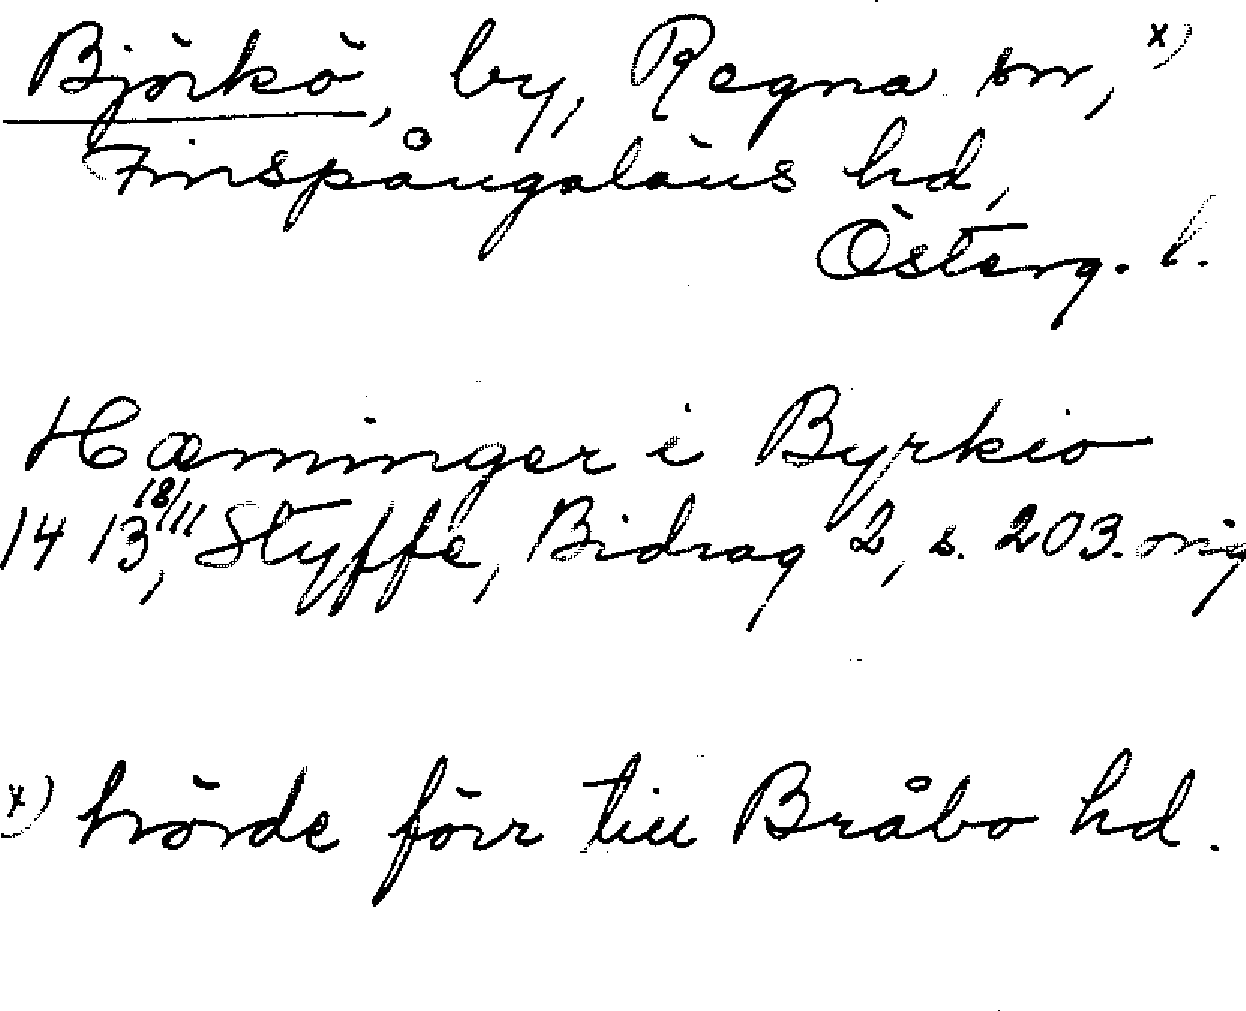 Björkö, by, Regna sn, x)
Finspångaläns hd,
Österg. l.
Hæminger i Byrkio
1413 18/11, Styffe, Bidrag 2, s. 203. orig
x) hörde förr till Bråbo hd.